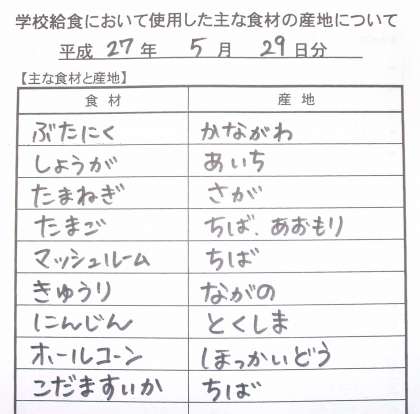 学校給食において使用した主な食材の産地について
平成 27 年 5 月 29 日分
【主な食材と産地】
食材 産地
ぶたにく かながわ
しょうが あいち
たまねぎ さが
たまご ちば、あおもり
マッシュルーム ちば
きゅうり ながの
にんじん とくしま
ホールコーン ほっかいどう
こだますいか ちば